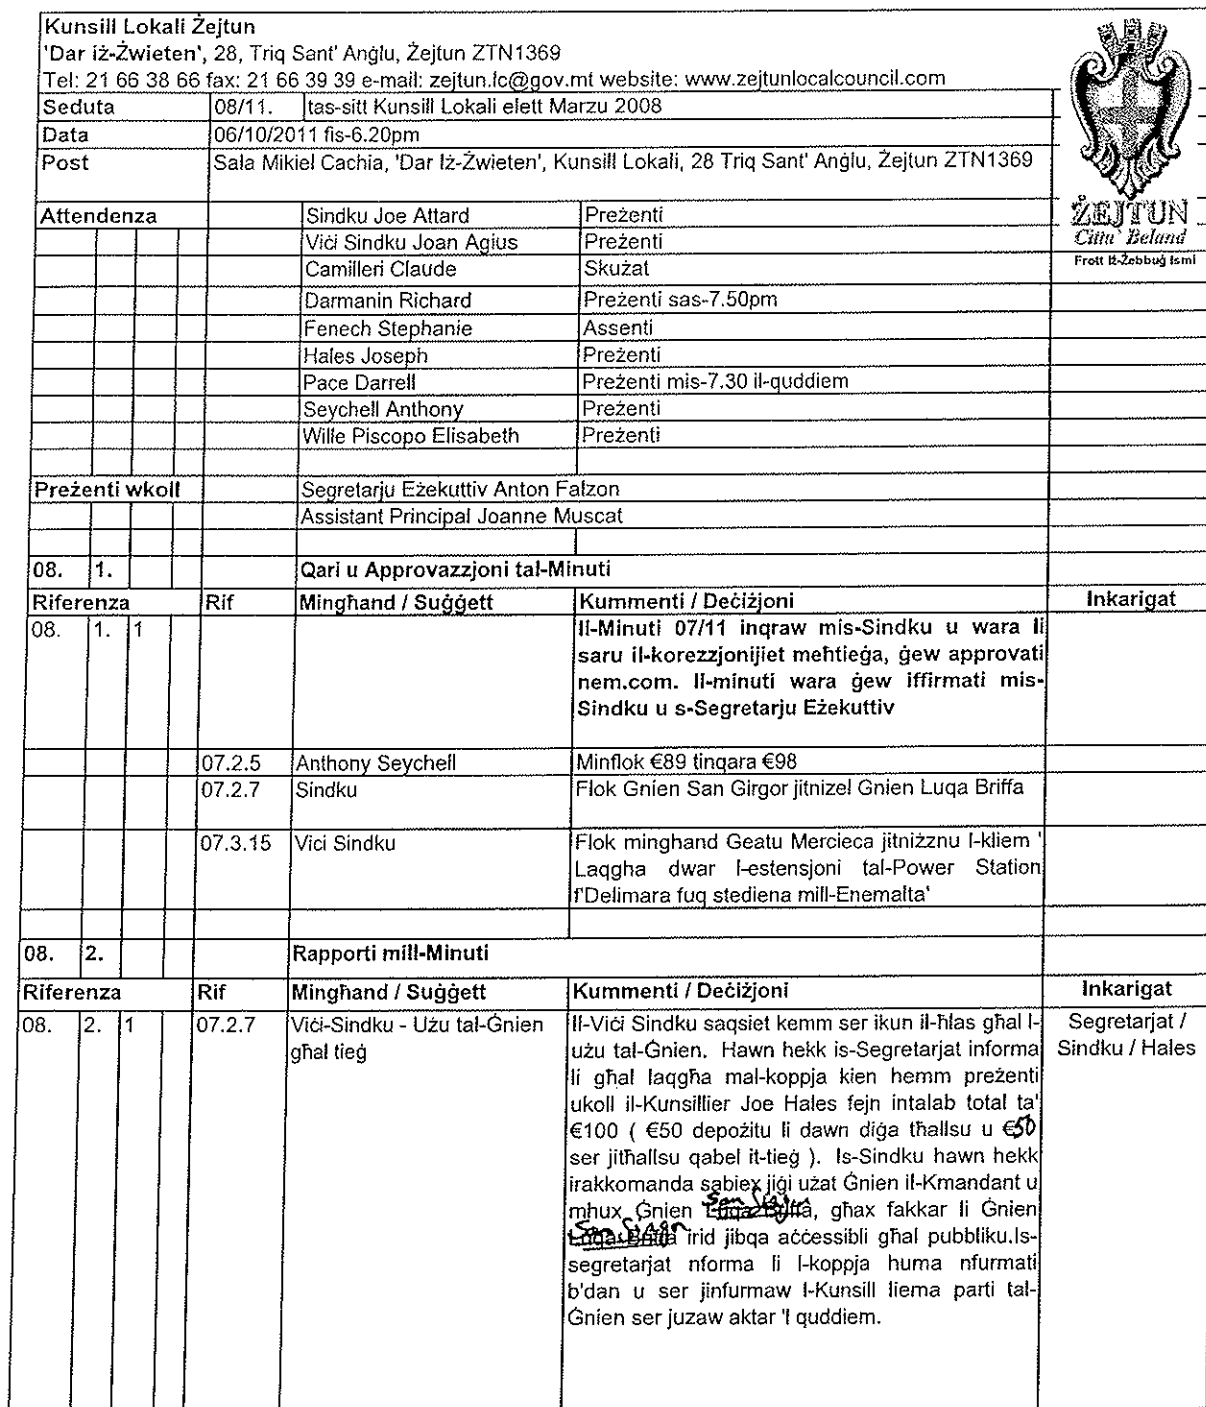 Kunsill Lokali Żejtun
'Dar iż-Żwieten', 28, Triq Sant' Anġlu, Żejtun ZTN1369
Tel: 21 66 38 66 fax: 21 66 39 39 e-mail: zejtun.lc@gov.mt website: www.zejtunlocalcouncil.com
Seduta 08/11. tas-sitt Kunsill Lokali elett Marzu 2008
Data 06/10/2011 fis-6.20pm
Post Sala Mikiel Cachia, 'Dar Iż-Żwieten', Kunsill Lokali, 28 Triq Sant' Anġlu, Żejtun ZTN1369
ŻEJTUN
Citta' Beland
Frott Iż-Żebbuġ Ismi
Attendenza Sindku Joe Attard Preżenti
Viċi Sindku Joan Agius Preżenti
Camilleri Claude Skużat
Darmanin Richard Preżenti sas-7.50pm
Fenech Stephanie Assenti
Hales Joseph Preżenti
Pace Darrell Preżenti mis-7.30 il-quddiem
Seychell Anthony Preżenti
Wille Piscopo Elisabeth Preżenti
Preżenti wkoll Segretarju Eżekuttiv Anton Falzon
Assistant Principal Joanne Muscat
08. 1. Qari u Approvazzjoni tal-Minuti
Riferenza Rif Mingħand / Suġġett Kummenti / Deċiżjoni Inkarigat
08. 1. 1 Il-Minuti 07/11 inqraw mis-Sindku u wara li
saru il-korezzjonijiet meħtieġa, ġew approvati
nem.com. Il-minuti wara ġew iffirmati mis-
Sindku u s-Segretarju Eżekuttiv
07.2.5 Anthony Seychell Minflok €89 tinqara €98
07.2.7 Sindku Flok Gnien San Girgor jitnizel Gnien Luqa Briffa
07.3.15 Vici Sindku Flok minghand Geatu Mercieca jitniżznu l-kliem '
Laqgha dwar l-estensjoni tal-Power Station
f'Delimara fuq stediena mill-Enemalta'
08. 2. Rapporti mill-Minuti
Riferenza Rif Mingħand / Suġġett Kummenti / Deċiżjoni Inkarigat
08. 2. 1 07.2.7 Viċi-Sindku - Użu tal-Ġnien Il-Viċi Sindku saqsiet kemm ser ikun il-ħlas għal l- Segretarjat /
għal tieġ użu tal-Ġnien. Hawn hekk is-Segretarjat informa Sindku / Hales
li għal laqgħa mal-koppja kien hemm preżenti
ukoll il-Kunsillier Joe Hales fejn intalab total ta'
€100 ( €50 depożitu li dawn diġa tħallsu u €50
ser jitħallsu qabel it-tieġ ). Is-Sindku hawn hekk
irakkomanda sabiex jiġi użat Ġnien il-Kmandant u
mhux Ġnien Luqa Briffa, għax fakkar li Ġnien
Luqa Briffa irid jibqa aċċessibli għal pubbliku.Is-
segretarjat nforma li l-koppja huma nfurmati
b'dan u ser jinfurmaw l-Kunsill liema parti tal-
Ġnien ser juzaw aktar 'l quddiem.